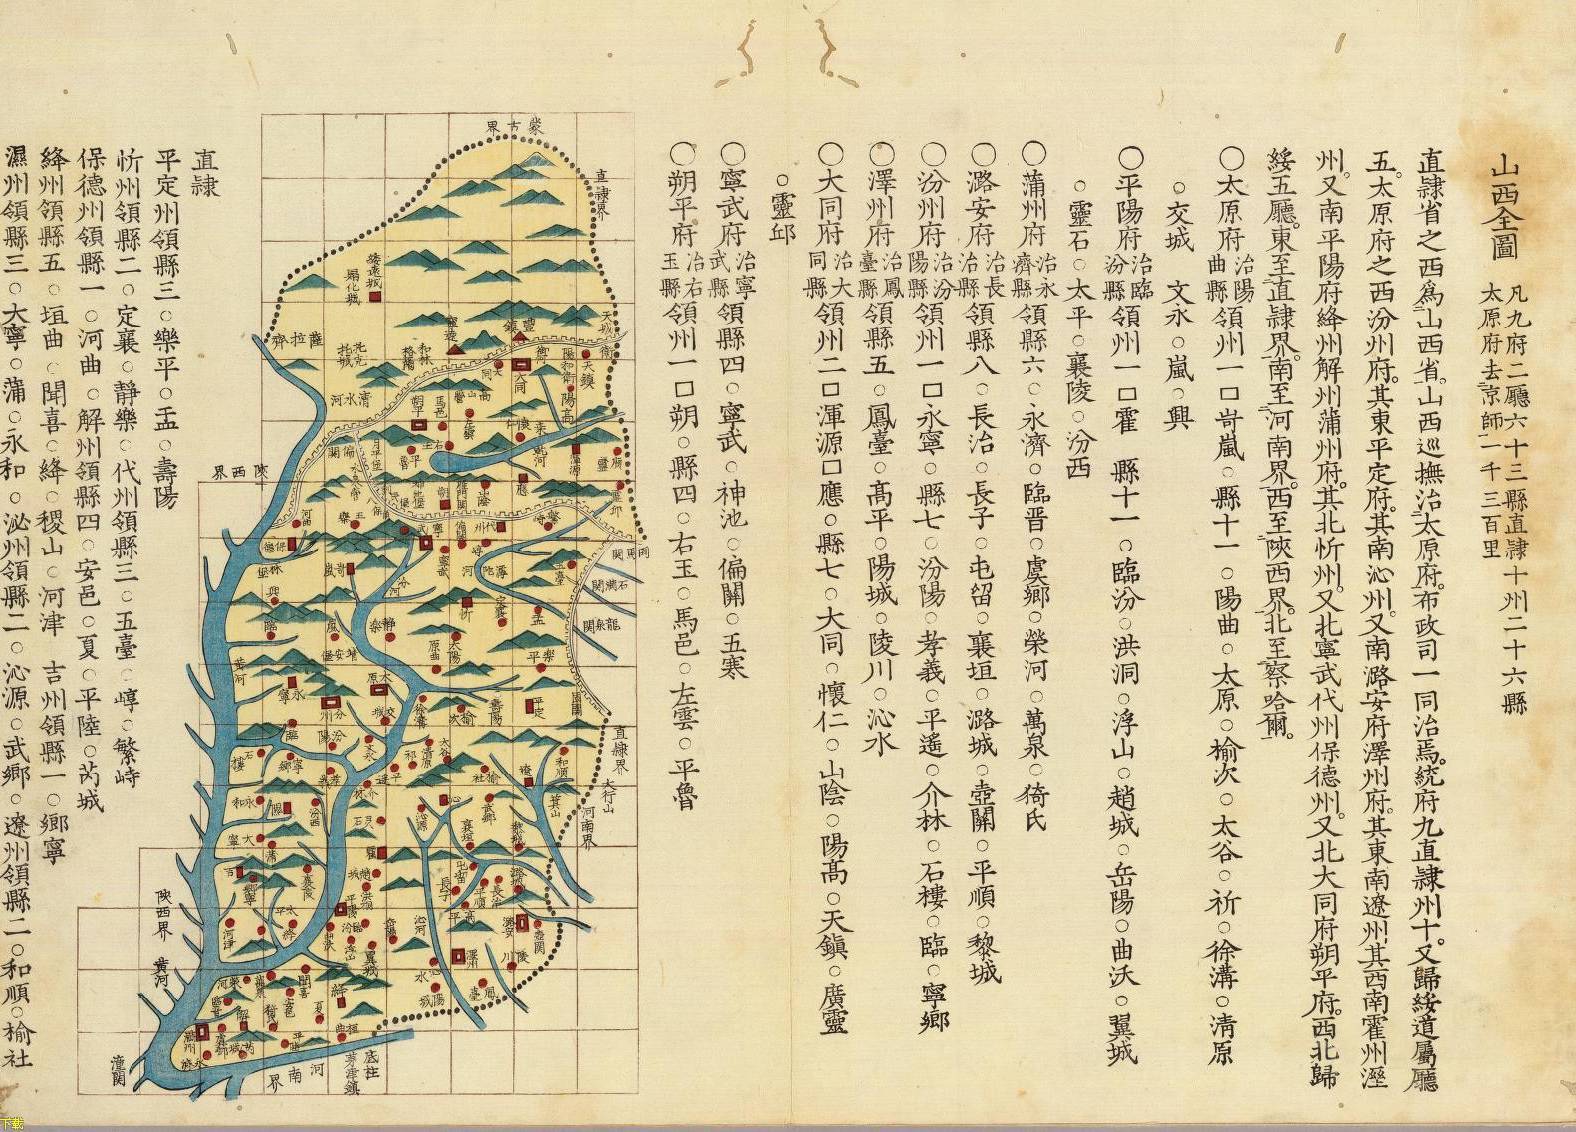 山西全圖
凡九府二廳六十三縣直隸十州二十六縣
太原府去京師一千三百里
直隸省之西爲山西省山西巡撫治太原府布政司一同治焉統府九直隸州十又歸綏道屬廳
五太原府之西汾州府其東平定府其南沁州又南潞安府澤州府其東南遼州其西南霍州溼
州又南平陽府絳州解州蒲州府其北忻州又北寧武代州保德州又北大同府朔平府西北歸
綏五廳東至直隸界南至河南界西至陝西界北至察哈爾
〇太原府治陽曲縣領州一口岢嵐○縣十一○陽曲○太原○榆次○太谷○祈○徐溝○清原
○交城 文水○嵐○興
〇平陽府治臨汾縣領州一口霍 縣十一○臨汾○洪洞○浮山○趙城○岳陽○曲沃○翼城
○靈石○太平○襄陵○汾西
〇蒲州府治永濟縣領縣六○永濟○臨晋○虞鄉○榮河○萬泉○倚氏
〇潞安府治長治縣領縣八○長治○長子○屯留○襄垣○潞城○壺關○平順○黎城
〇汾州府治汾陽縣領州一口永寧○縣七○汾陽○孝義○平遙○介林○石樓○臨○寧鄉
〇澤州府治鳳臺縣領縣五○鳳臺○高平○陽城○陵川○沁水
〇大同府治大同縣領州二口渾源口應○縣七○大同○懷仁○山陰○陽高○天鎮○廣靈
○靈邱
〇寧武府治寧武縣領縣四○寧武○神池○偏關○五寒
〇朔平府治右玉縣領州一口朔○縣四○右玉○馬邑○左雲○平魯
蒙古界
直隸界
綏遠城
歸化城
薩拉齊
豐鎮
寧遠
天城衛
托克托城
和林格爾
清水河
大同
陽和衛
天鎮
陽高
陝西界
馬邑
朔平
平魯
渾源
應
廣靈
靈邱
河曲
代州
繁峙
五臺
寧武
岢嵐
龍泉關
定襄
忻
盂
興
臨
嵐
靜樂
樂平
黃河
永寧
太原
陽曲
汾州
汾陽
交城
徐溝
榆次
壽陽
平定
固關
直隸界
石樓
寧鄉
文水
祁
清原
太谷
榆社
和順
遼
大行山
河南界
永和
汾西
沁源
武鄉
襄垣
大寧
蒲
霍
吉
鄉寧
襄陵
趙城
洪洞
屯留
長子
長治
平順
潞城
潞安
壺關
陝西界
黃河
河津
太平
平陽
臨汾
浮山
岳陽
沁河
高平
澤州
陵川
翼城
沁水
陽城
鳳臺
聞喜
絳
夏
安邑
解
蒲州
垣曲
平陸
潼關
河南界
底柱
茅津鎮
直隸
平定州領縣三○樂平○盂○壽陽
忻州領縣二○定襄○靜樂○代州領縣三○五臺○崞○繁峙
保德州領縣一○河曲○解州領縣四○安邑○夏○平陸○芮城
絳州領縣五○垣曲○聞喜○絳○稷山○河津 吉州領縣一○鄉寧
濕州領縣三○大寧○蒲○永和○泌州領縣二○沁源○武鄉○遼州領縣二○和順○榆社
下载